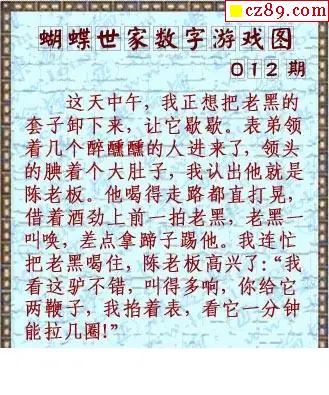 cz89.com
蝴蝶世家数字游戏图
012期
这天中午，我正想把老黑的
套子卸下来，让它歇歇。表弟领
着几个醉醺醺的人进来了，领头
的腆着个大肚子，我认出他就是
陈老板。他喝得走路都直打晃，
借着酒劲上前一拍老黑，老黑一
叫唤，差点拿蹄子踢他。我连忙
把老黑喝住，陈老板高兴了：“我
看这驴不错，叫得多响，你给它
两鞭子，我掐着表，看它一分钟
能拉几圈！”